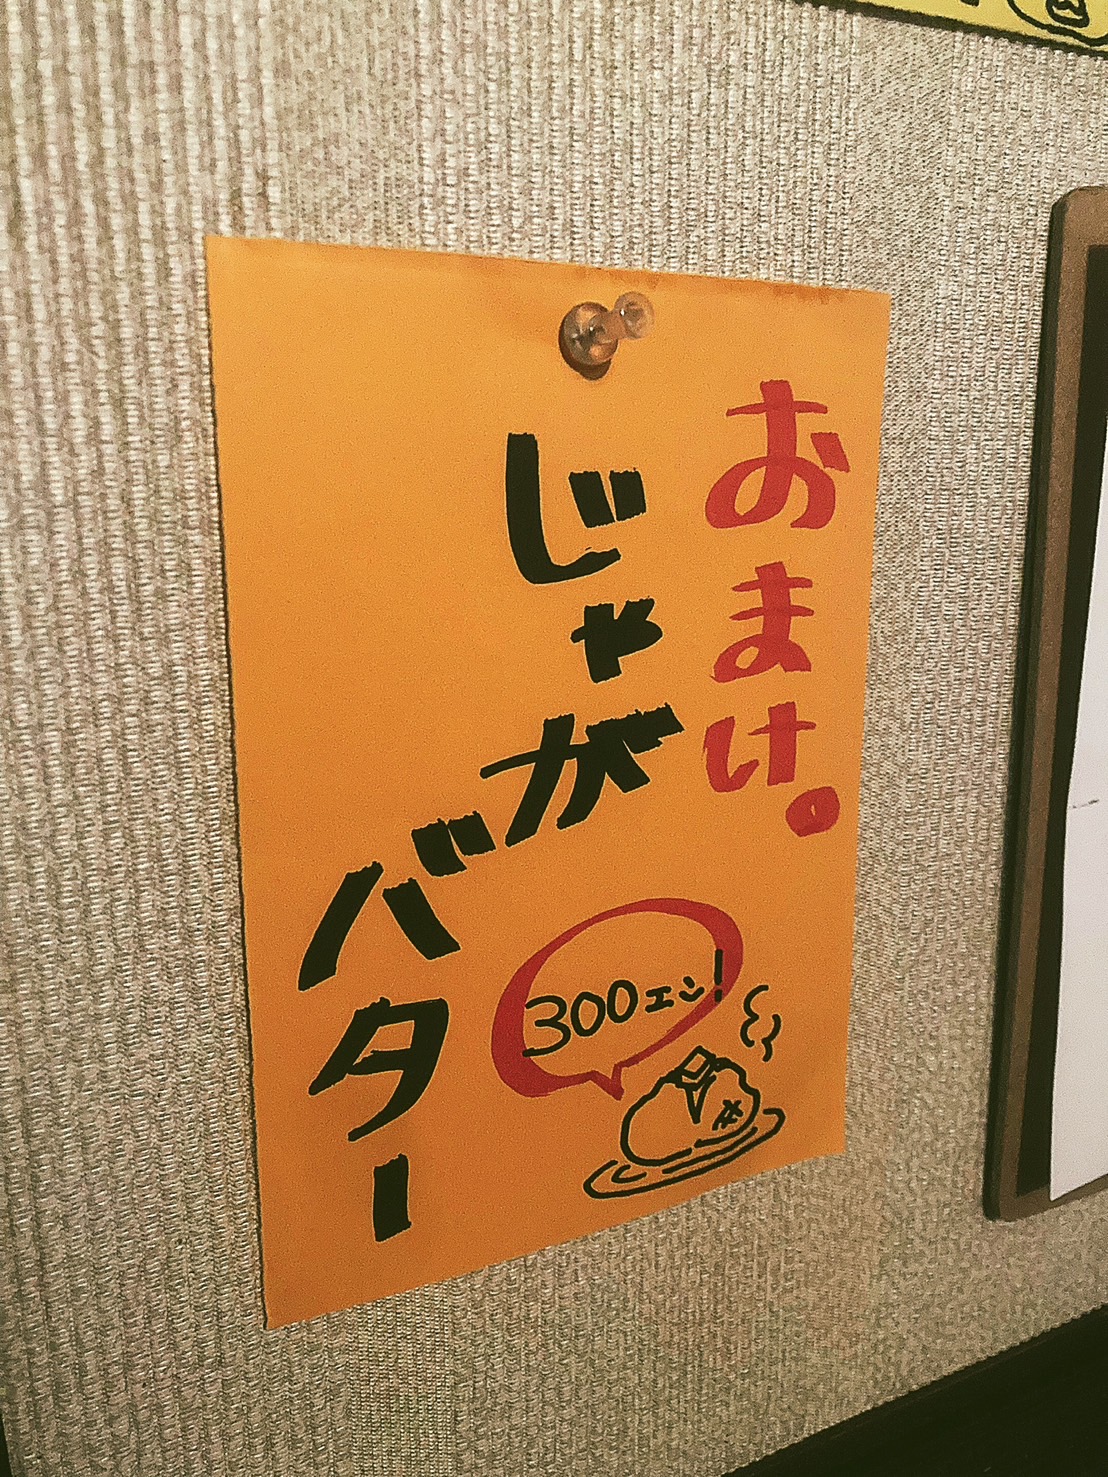 おまけ。
じゃが
バター
300エン!